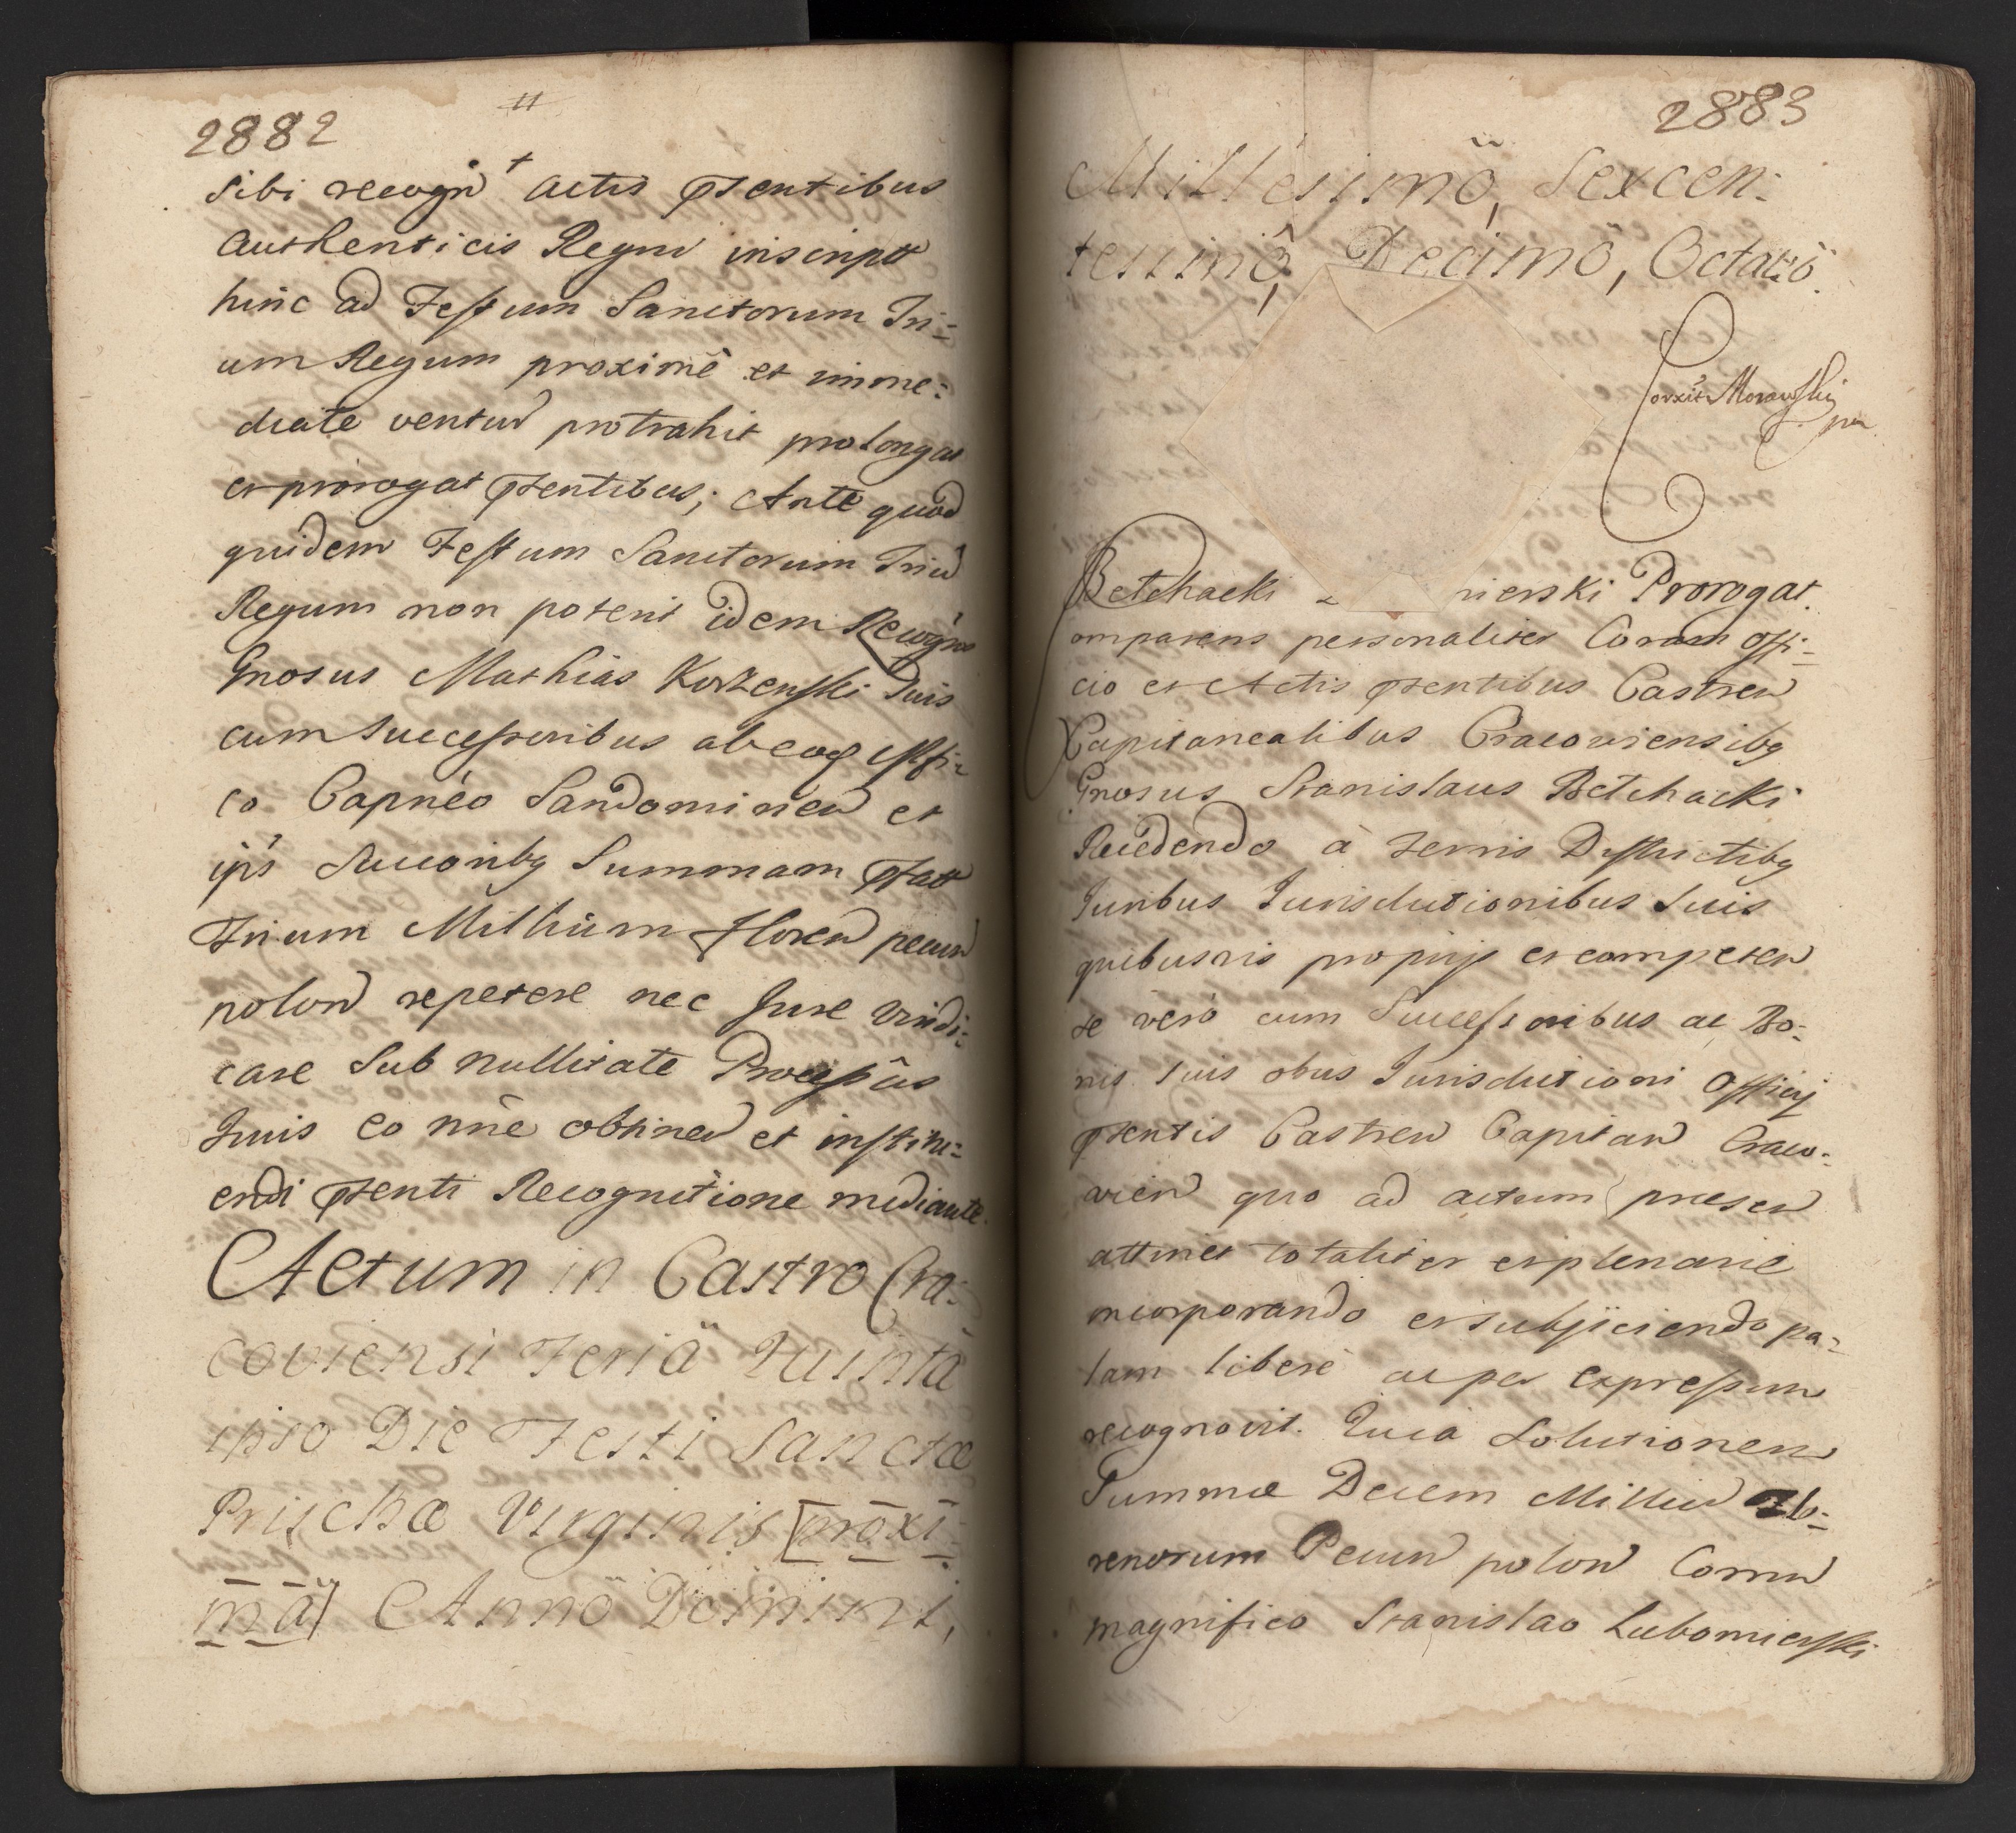 2882
Sibi recogn actis pntentibus
Authenticis Regni inscript
hinc ad Festum Sanctorum Tri-
um Regum proximè et imme-
diatè ventur protrahit prolongat
et prorogat pntentibus; Ante quod
quidem Festum Sanctorum Triū
Regum non poterit idem Recogn
Gnosus Mathias Korzenski Suis
cum Successoribus ab eoq Offi-
co Capnèo Sandomirien et
ips Succoribq Summam pfatt
Trium Millium Floren pecun
polon repetere nec Jure vindi-
care Sub nullitate Processûs
Juris eo nne obtinen et institu-
endi pntenti Recognitione mediante.
Actum in Castro Cra-
coviensi Feriâ Quintâ
ipso Die Festi Sanctæ
Prischæ Virginis [proxi-
mâ] Annô Dominini,
2883
Millesimô, Sexcen-
tessimô, Decimô, Octavô.
Corxit Morawski
mp
Betchacki L nierski Prorogat.
omparens personaliter Coram offi-
cio et Actis pntentibus Castren
Capitanealibus Cracoviensibq
Gnosus Stanislaus Betchacki
Recedendo à terris Districtibq
Juribus Jurisdictionibus Suis
quibusvis proprijs et competen
se verò cum Successoribus ac Bo-
nis suis obus Jurisdictioni Officij
pntentis Castren Capitan Craco-
vien quo ad actum praesen
attinet totaliter et plenariè
incorporando et subjiciendo pa-
lam liberè ac per expressum
recognovit. Quia Solutionem
Summæ Decem Milliū Flo-
renorum Pecun polon Corum
magnifico Stanislao Lubomierski